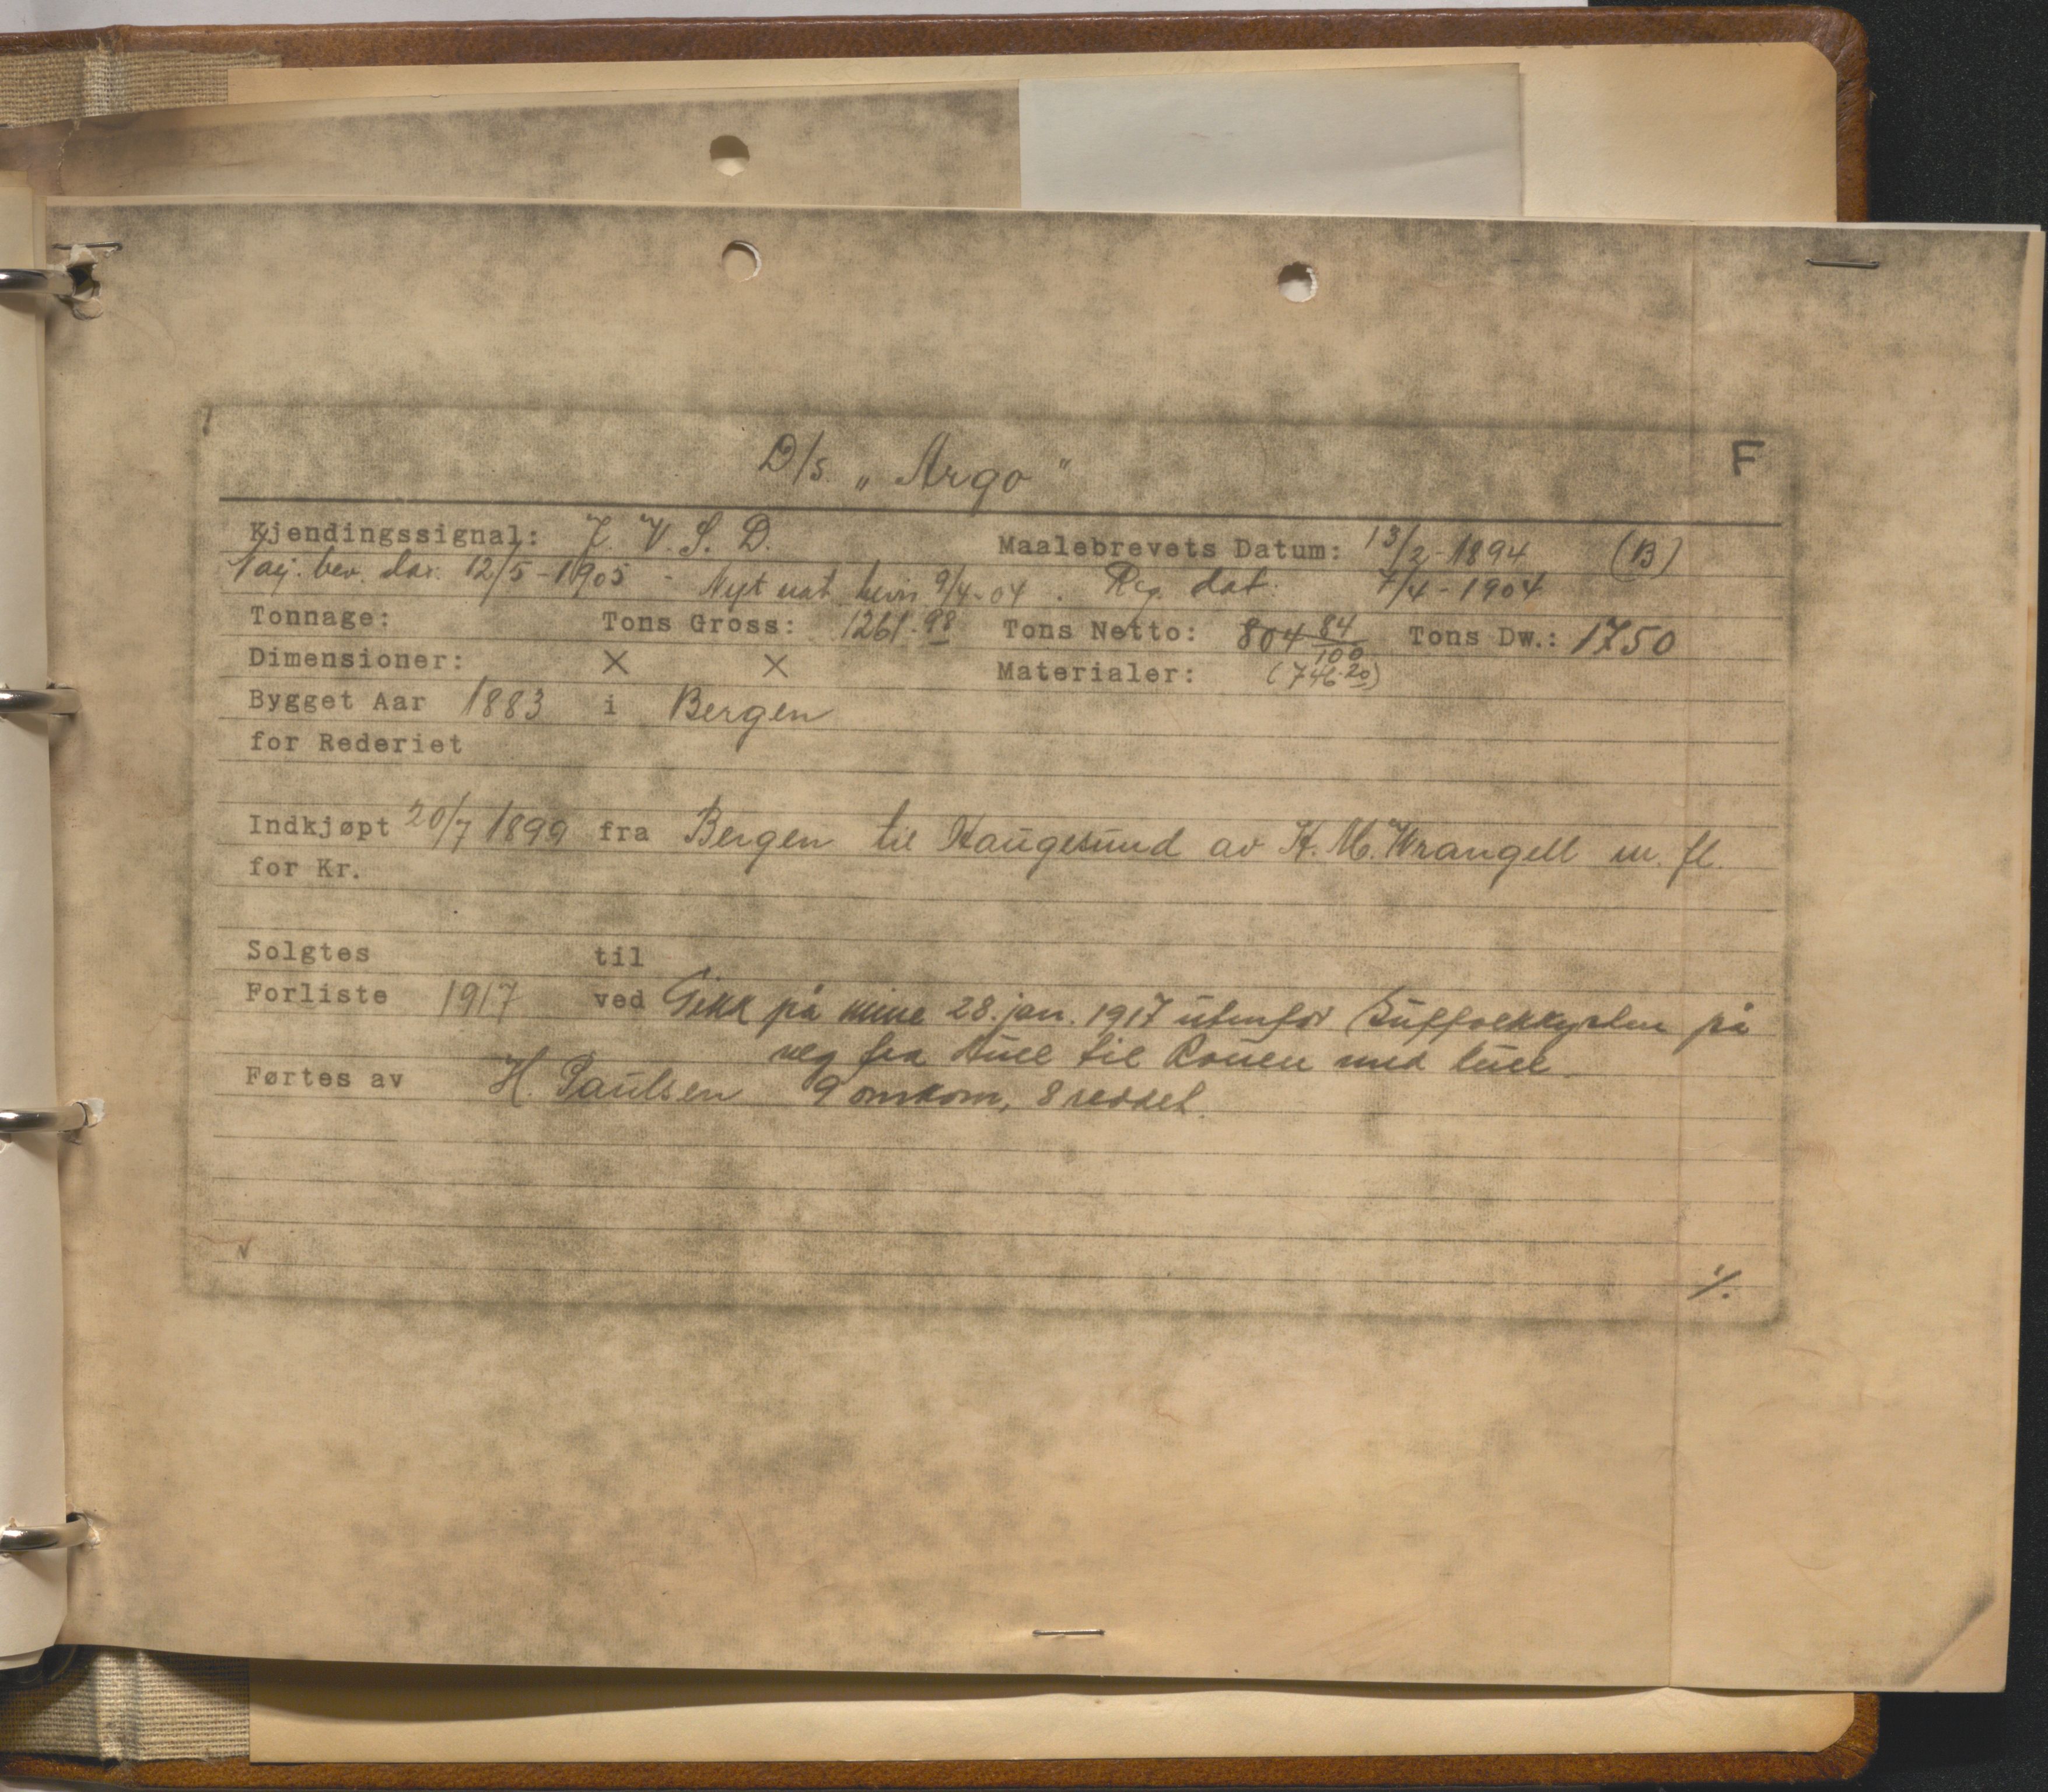 D/s. „Argo"
F
Kjendingssignal: J. V. S. D. Maalebrevets Datum: 13/2-1894 (B)
bev. dat. 12/5-1905 - Nyt nat. bevis 9/4-04. Reg. dat. 7/4-1904
Tonnage: Tons Gross: 1261.98 Tons Netto: 804 84/100 Tons Dw.: 1750
Dimensioner: × × Materialer: (746.20)
Bygget Aar 1883 i Bergen
for Rederiet
Indkjøpt 20/7 1899 fra Bergen til Haugesund av H. M. Wrangell m. fl.
for Kr.
Solgtes til
Forliste 1917 ved Gikk på mine 28. jan. 1917 utenfor Suffolkkysten på
veg fra Hull til Rouen med kull.
Førtes av H. Paulsen 9 omkom, 8 reddet.
1/.